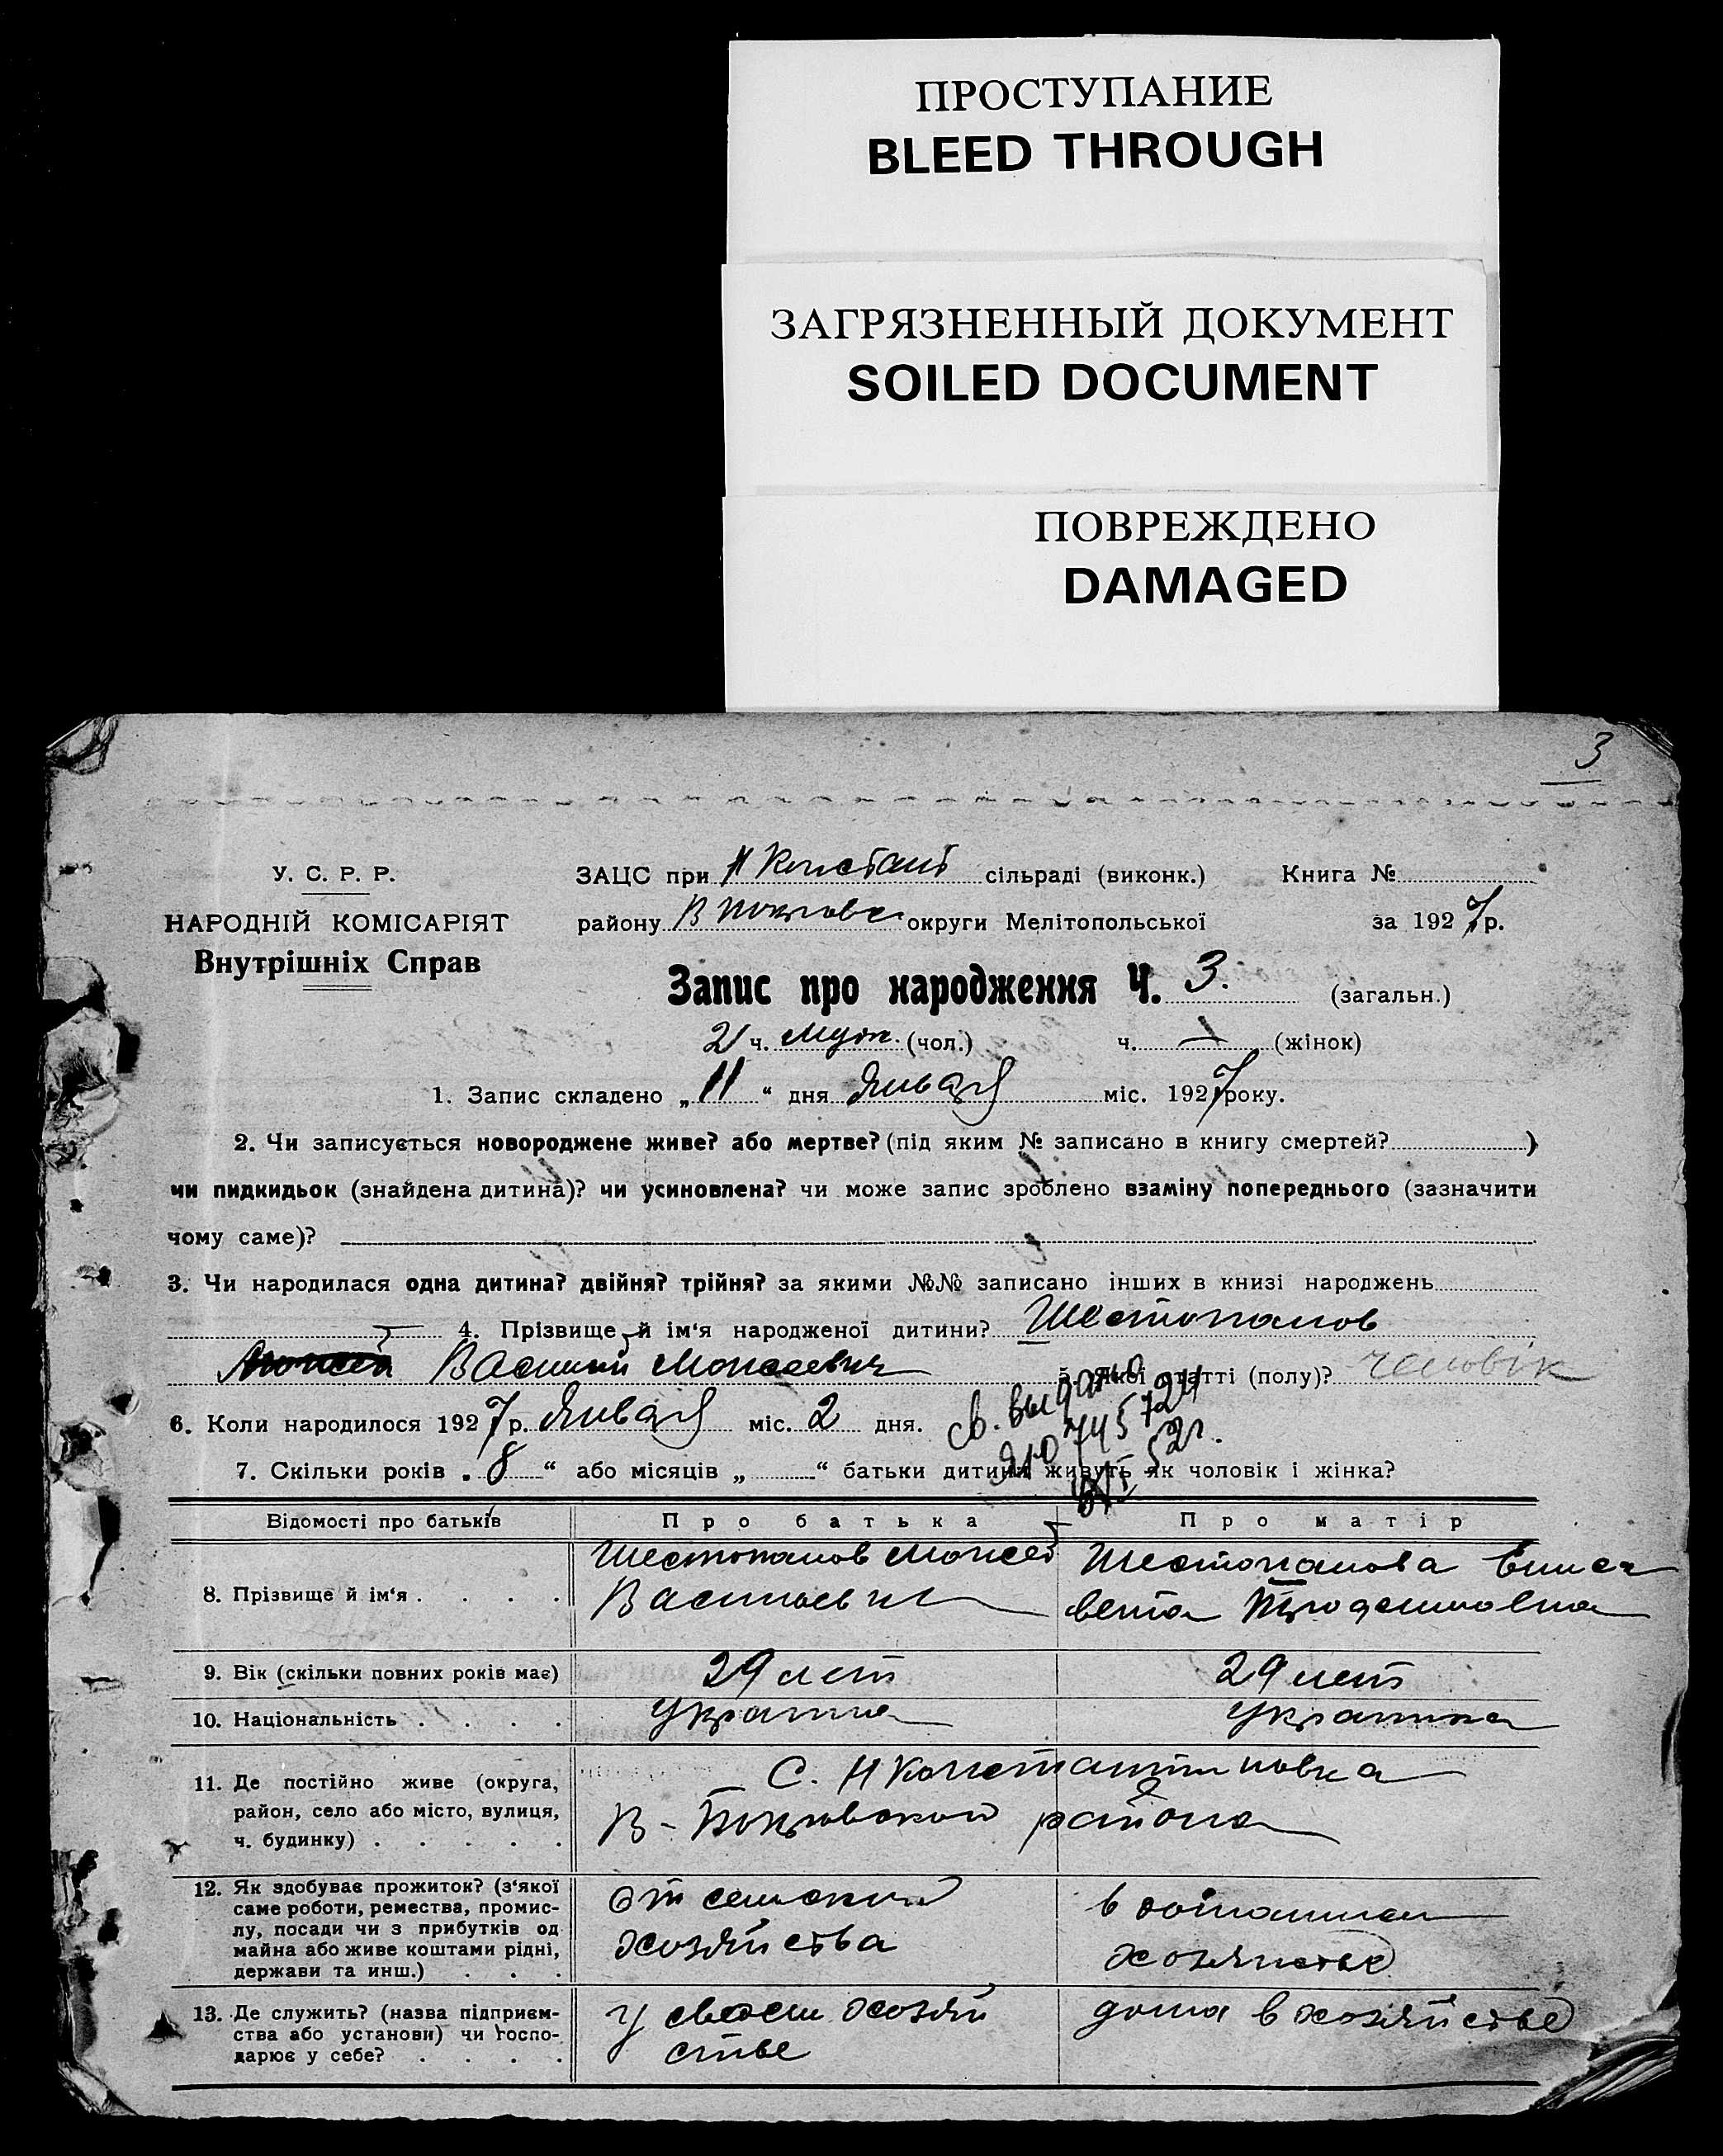 ПРОСТУПАНИЕ
BLEED THROUGH
ЗАГРЯЗНЕННЫЙ ДОКУМЕНТ
SOILED DOCUMENT
ПОВРЕЖДЕНО
DAMAGED
3
У. С. Р. Р.
НАРОДНІЙ КОМІСАРІЯТ
Внутрішніх Справ
ЗАЦС при Н Констант сільраді (виконк.) Книга №
району В Покровс округи Мелітопольської за 1927 р.
Запис про народження Ч. 3. (загальн.)
2 ч. муж. (чол.) ч. (жінок)
1. Запис складено „11“ дня Января міс. 1927 року.
2. Чи записується новороджене живе? або мертве? (під яким № записано в книгу смертей? )
чи пидкидьок (знайдена дитина)? чи усиновлена? чи може запис зроблено взаміну попереднього (зазначити
чому саме)?
3. Чи народилася одна дитина? двійня? трійня? за якими №№ записано інших в книзі народжень
4. Прізвище й ім‘я народженої дитини? Шестопалов
Василий Моисеевич 5. Якої статті (полу)? чоловік
6. Коли народилось 1927 р. Января міс. 2 дня.
св. выдано
ЯЮ 745724
52г.
7. Скільки років „8“ або місяців „ “ батьки дитини живуть як чоловік і жінка?
Відомості про батьків Про батька Про матір
8. Прізвище й ім‘я
Шестопалов Моисей
Васильевич
Шестопалова Елиса
вета
9. Вік (скільки повних років має) 29 лет 29 лет
10. Національність Украинец Украинка
11. Де постійно живе (округа,
район, село або місто, вулиця,
ч. будинку)
С. Н Константиновка
В-Покровской района
12. Як здобуває прожиток? (з‘якої
саме роботи, ремества, промис-
лу, посади чи з прибутків од
майна або живе коштами рідні,
держави та инш.)
От сельский
хозяйства
в домашнем
хозяйстве
13. Де служить? (назва підприєм-
ства або установи) чи госпо-
дарює у себе?
У своем хозяй
стве
дома в хозяйстве